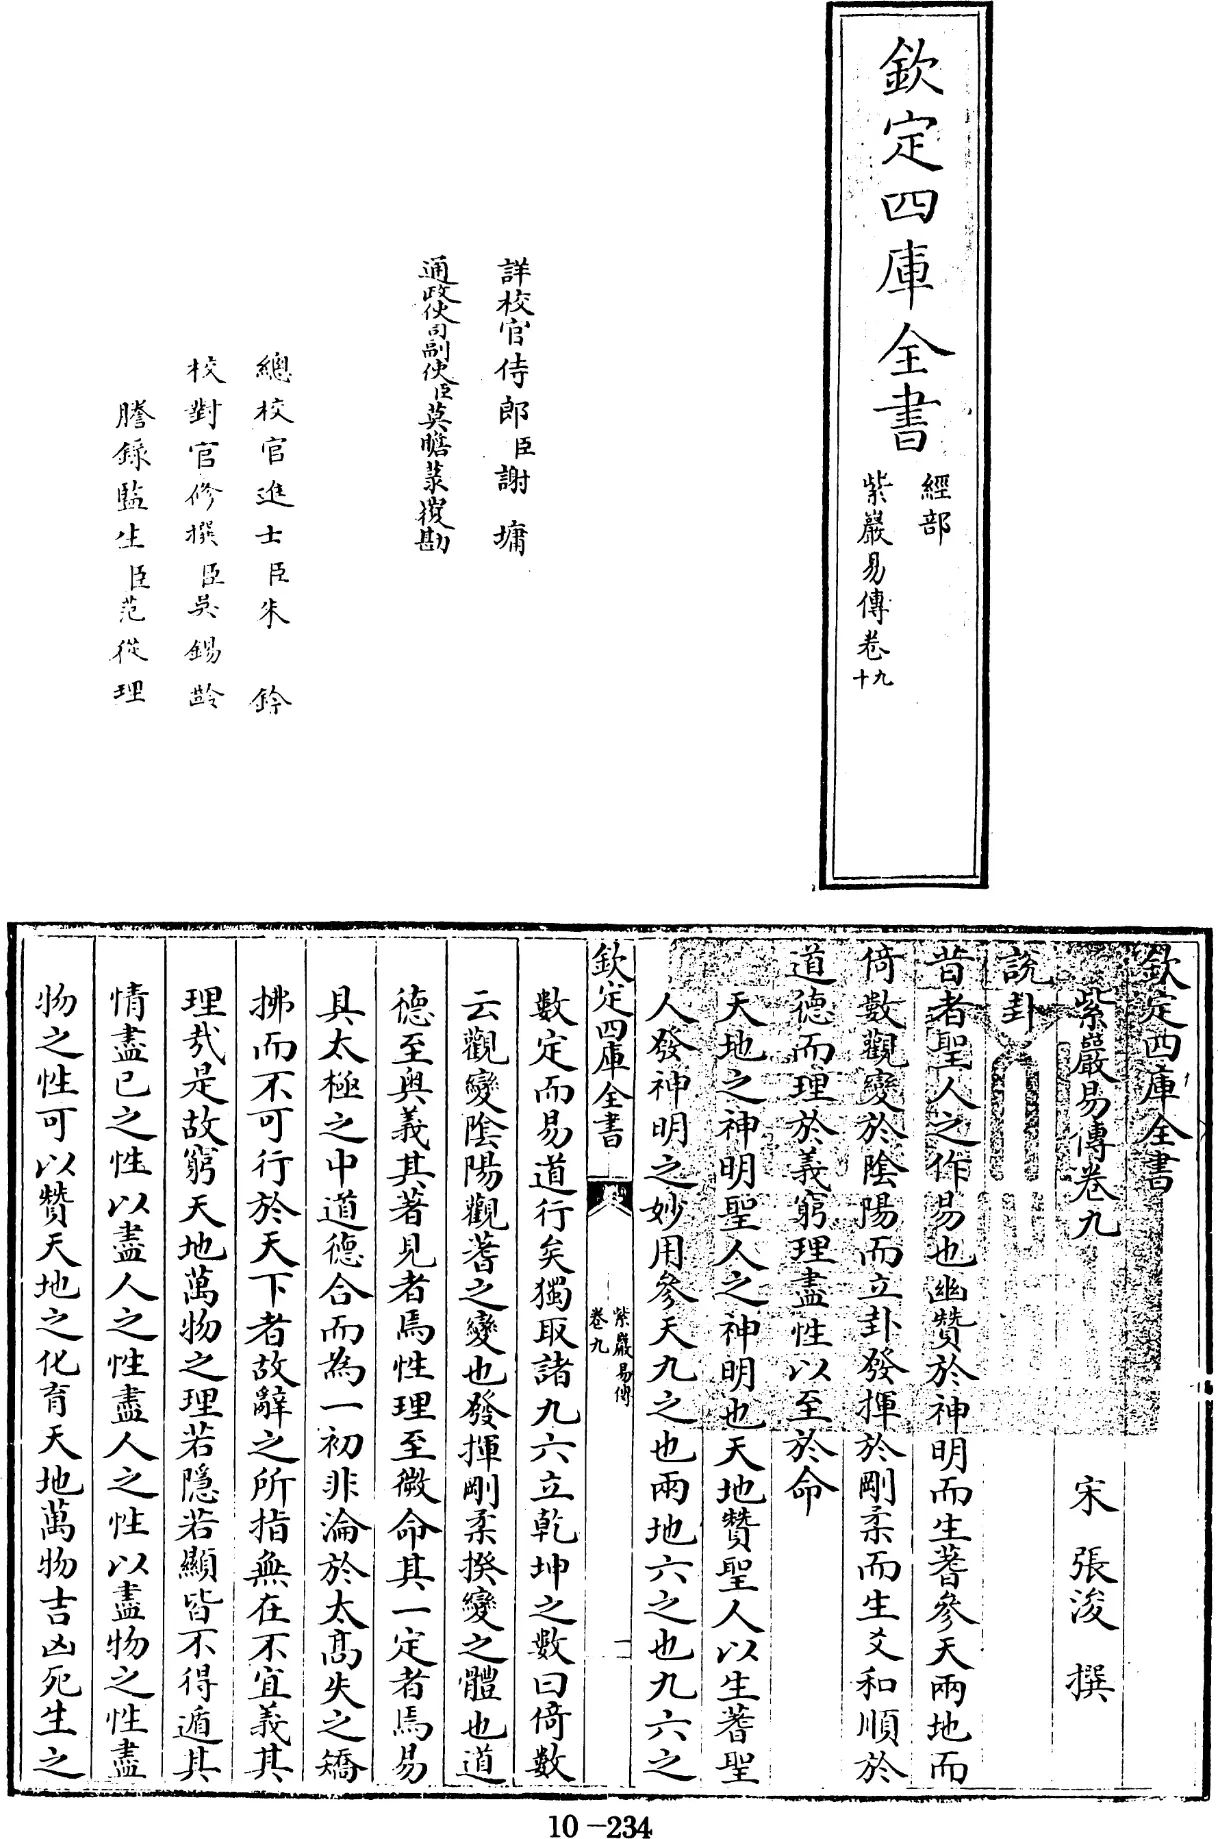 欽定四庫全書
經部
紫巖易傳卷
九
十
詳校官侍郎臣謝墉
通政使司副使臣莫瞻菉覆勘
總校官進士臣朱鈐
校對官修撰臣吳錫齡
謄錄監生臣范從理
欽定四庫全書
紫巖易傳卷九
宋 張浚 撰
說卦
昔者聖人之作易也幽贊於神明而生蓍參天兩地而
倚數觀變於陰陽而立卦發揮於剛柔而生爻和順於
道德而理於義窮理盡性以至於命
天地之神明聖人之神明也天地贊聖人以生蓍聖
人發神明之妙用參天九之也兩地六之也九六之
欽定四庫全書
紫巖易傳
卷九
一
數定而易道行矣獨取諸九六立乾坤之數曰倚數
云觀變陰陽觀蓍之變也發揮剛柔揆變之體也道
德至與義其著見者焉性理至微命其一定者焉易
具太極之中道德合而為一初非淪於太高失之矯
拂而不可行於天下者故辭之所指無在不宜義其
理哉是故窮天地萬物之理若隱若顯皆不得遁其
情盡己之性以盡人之性盡人之性以盡物之性盡
物之性可以贊天地之化育天地萬物吉凶死生之
10－234